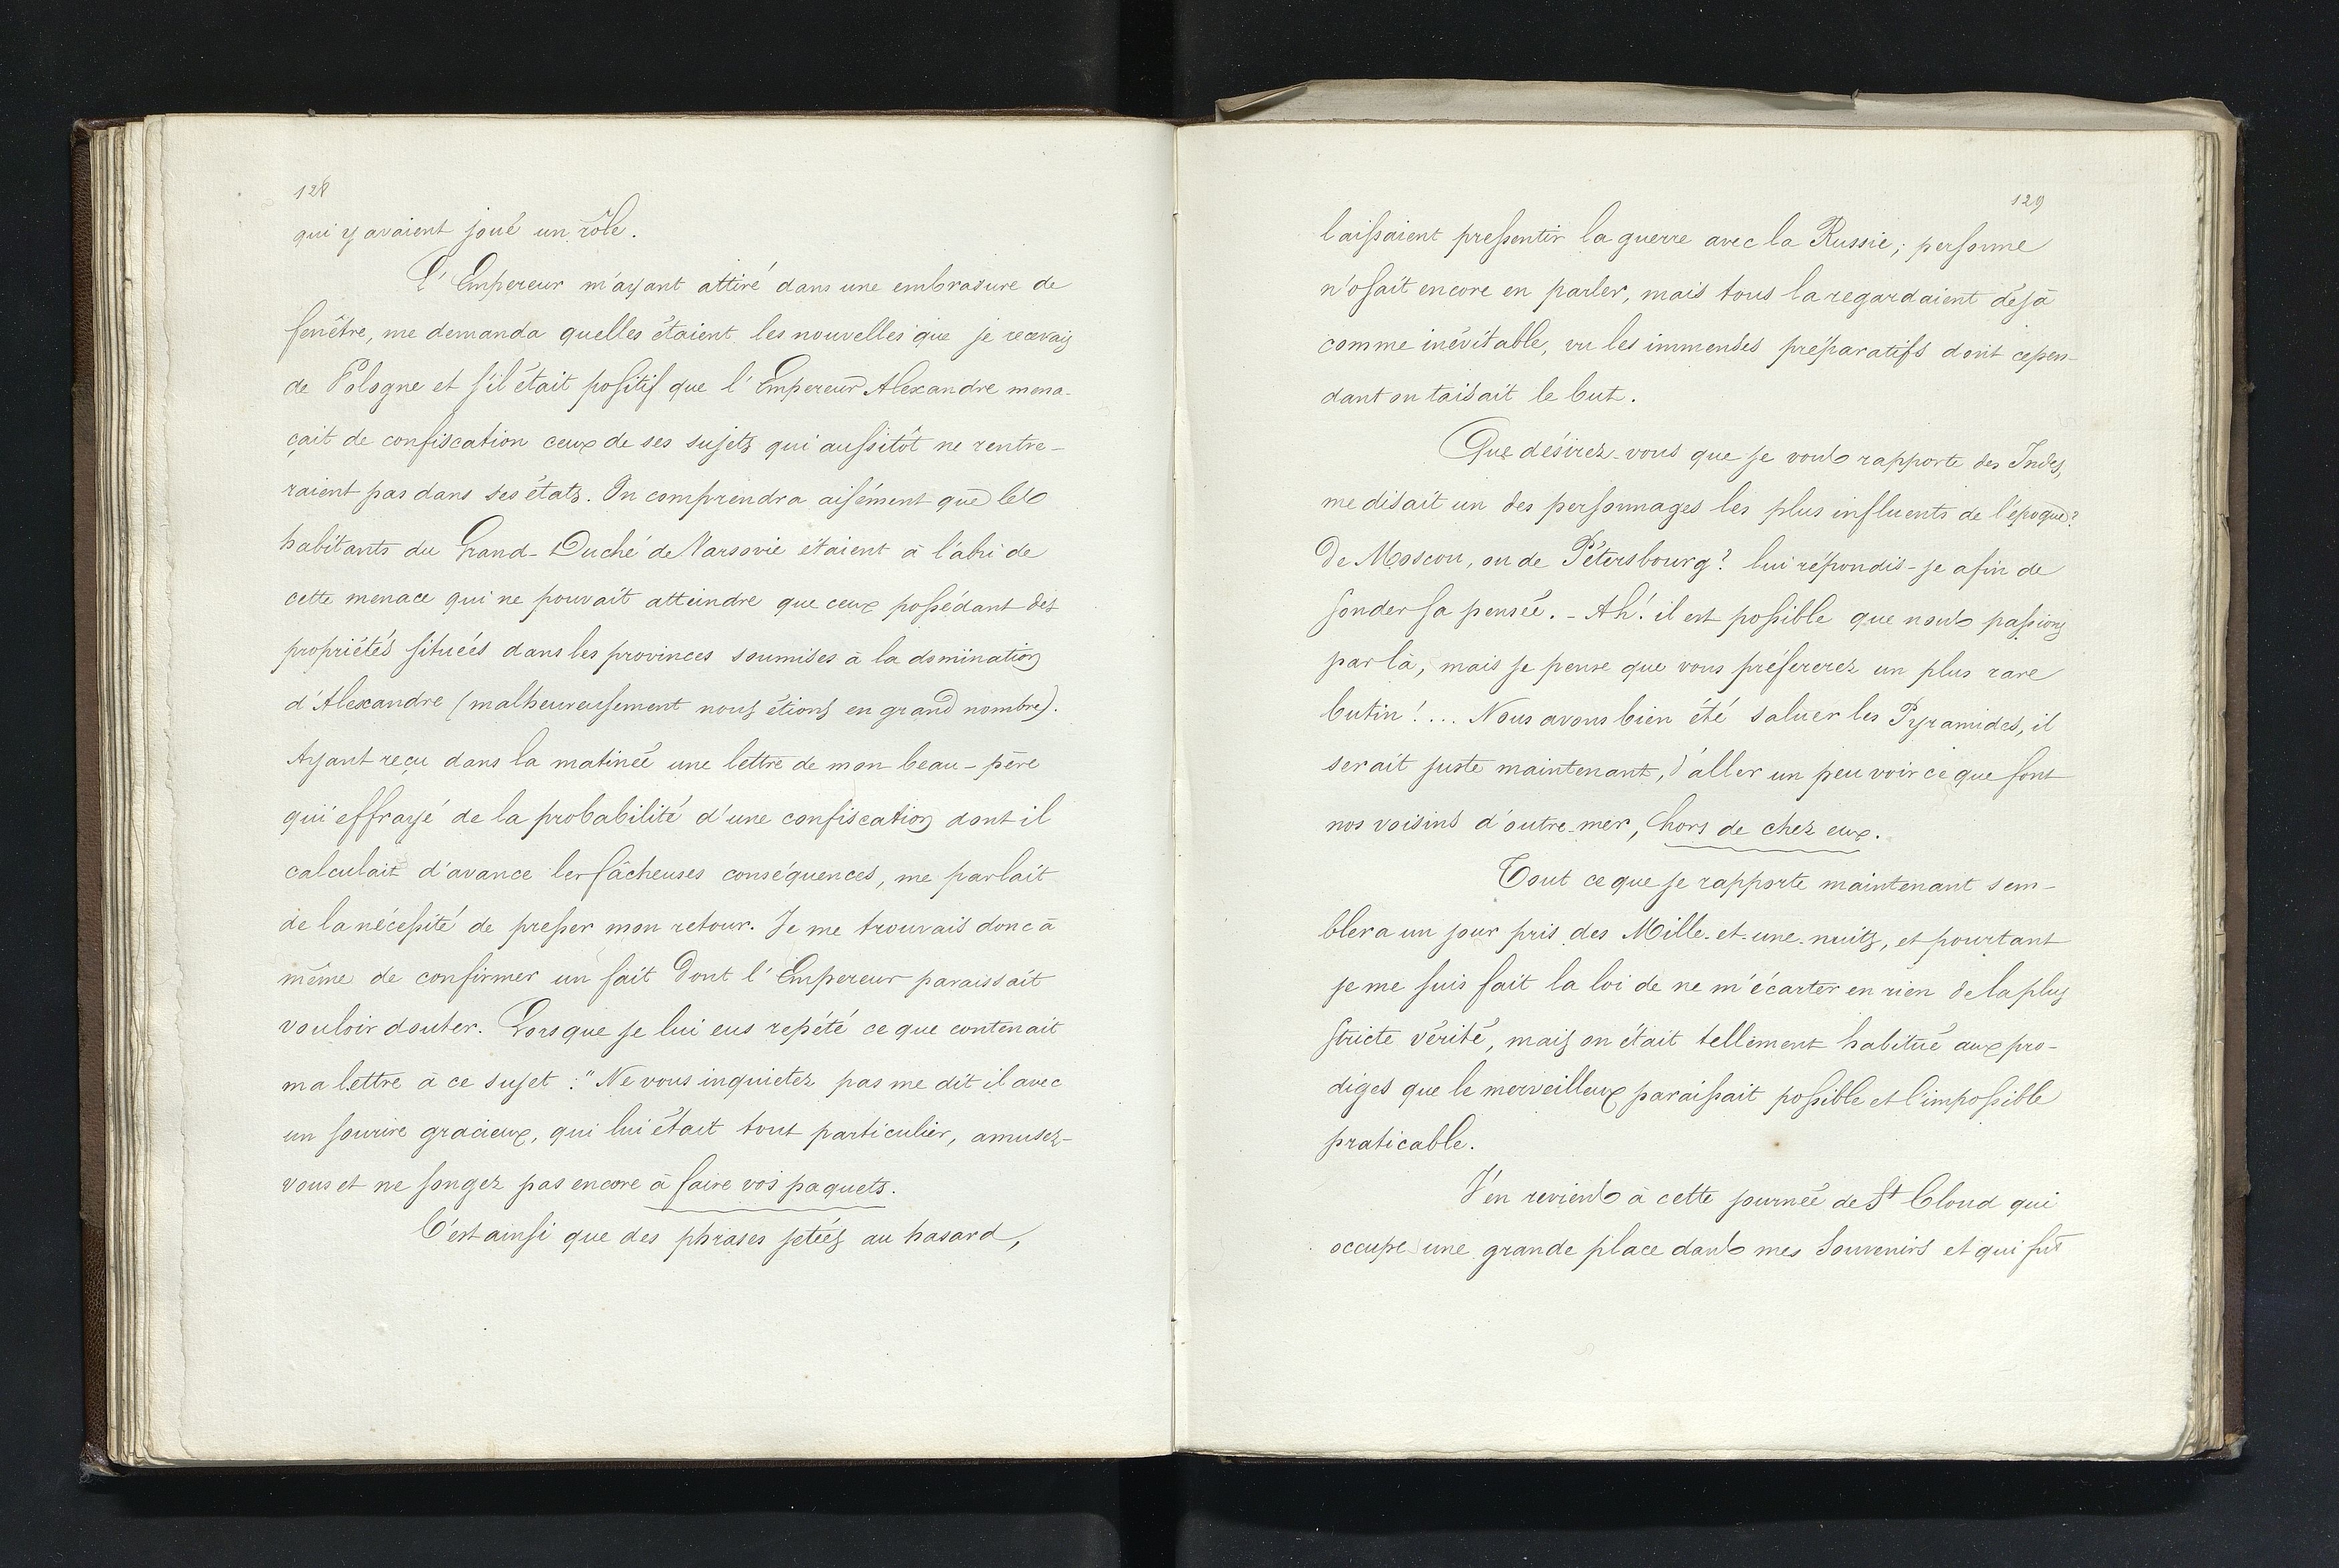 128
qui y avaient joué un rôle.
L'Empereur m'ayant attiré dans une embrasure de
fenêtre, me demanda quelles étaient les nouvelles que je recevais
de Pologne et s'il était positif que l'Empereur Alexandre mena-
çait de confiscation ceux de ses sujets qui aussitôt ne rentre-
raient pas dans ses états. On comprendra aisément que les
habitants du Grand-Duché de Varsovie étaient à l'abri de
cette menace qui ne pouvait atteindre que ceux possédant des
propriétés situées dans les provinces soumises à la domination
d'Alexandre (malheureusement nous étions en grand nombre).
Ayant reçu dans la matinée une lettre de mon beau-père
qui effrayé de la probabilité d'une confiscation dont il
calculait d'avance les fâcheuses conséquences, me parlait
de la nécessité de presser mon retour. Je me trouvais donc à
même de confirmer un fait dont l'Empereur paraissait
vouloir douter. Lorsque je lui eus repété ce que contenait
ma lettre à ce sujet : "Ne vous inquietez pas me dit il avec
un sourire gracieux, qui lui était tout particulier, amusez-
vous et ne songez pas encore à faire vos paquets.
C'est ainsi que des phrases jetées au hasard,
129
laissaient pressentir la guerre avec la Russie ; personne
n'osait encore en parler, mais tous la regardaient déjà
comme inévitable, vu les immenses préparatifs dont cepen-
dant on taisait le but.
Que désirez-vous que je vous rapporte des Indes,
me disait un des personnages les plus influents de l'époque?
De Moscou, ou de Pétersbourg? lui répondis-je afin de
sonder sa pensée. - Ah! il est possible que nous passions
par là, mais je pense que vous préfererez un plus rare
butin!... Nous avons bien été saluer les Pyramides, il
serait juste maintenant, d'aller un peu voir ce que font
nos voisins d'outre-mer, hors de chez eux.
Tout ce que je rapporte maintenant sem-
blera un jour pris des Mille-et-une-nuits, et pourtant
je me suis fait la loi de ne m'écarter en rien de la plus
stricte vérité, mais on était tellement habitué aux pro-
diges que le merveilleux paraissait possible et l'impossible
praticable.
J'en reviens à cette journée de St Cloud qui
occupe une grande place dans mes Souvenirs et qui fut